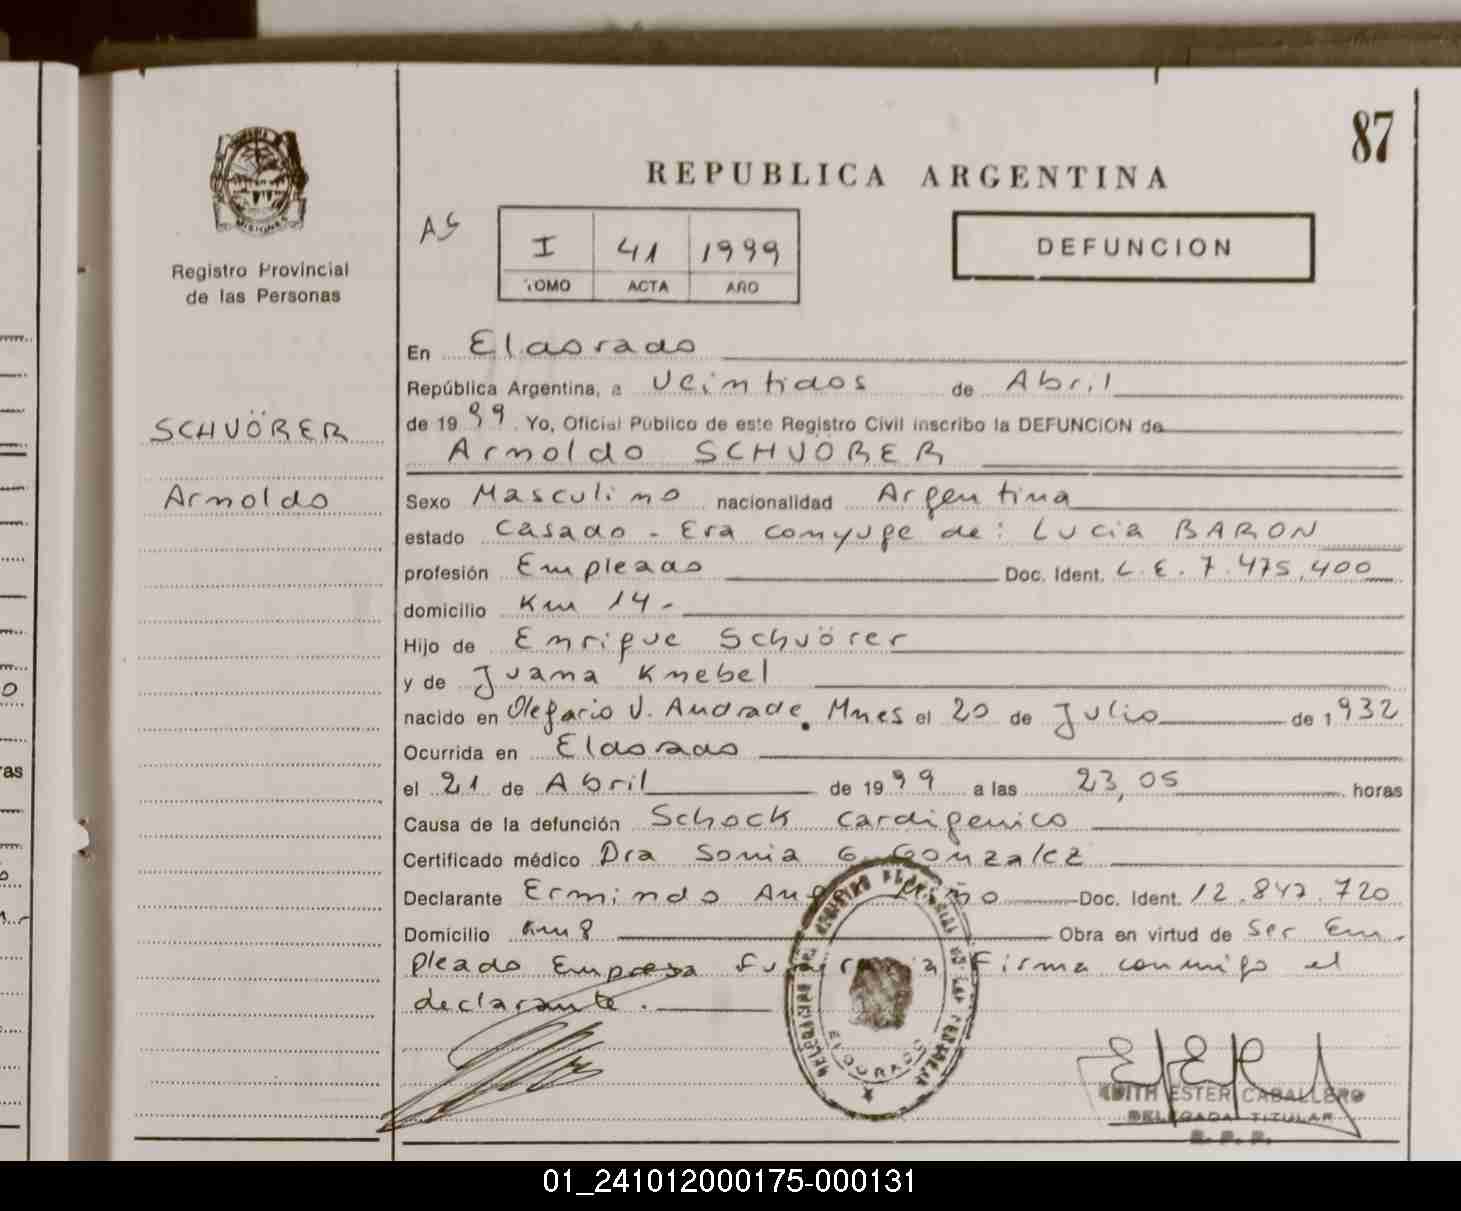 87
REPUBLICA ARGENTINA
MISIONES
Registro Provincial
de las Personas
AS
I 41 1999
TOMO ACTA AÑO
DEFUNCION
En Eldorado
República Argentina, a Veintidos de Abril
de 1999. Yo, Oficial Público de este Registro Civil inscribo la DEFUNCION de
SCHVÖRER
Arnoldo SCHVÖRER
Arnoldo
Sexo Masculino nacionalidad Argentina
estado Casado - Era conyuge de: Lucia BARON
profesión Empleado Doc. Ident. L.E. 7.475.400
domicilio Km 14-
Hijo de Enrique Schvörer
y de Juana Knebel
nacido en Olegario V. Andrade. Mnes el 20 de Julio de 1932
Ocurrida en Eldorado
el 21 de Abril de 1999 a las 23,05 horas
Causa de la defunción Schock cardigenico
Certificado médico Dra Sonia G. Gonzalez
Declarante Ermindo Doc. Ident. 12.847.720
Domicilio Km 8 Obra en virtud de Ser Em-
pleado Empresa Funeraria Firma conmigo el
declarante.
ELDORADO
EDITH ESTER CABALLERO
DELEGADA TITULAR
R. P. P.
01_241012000175-000131